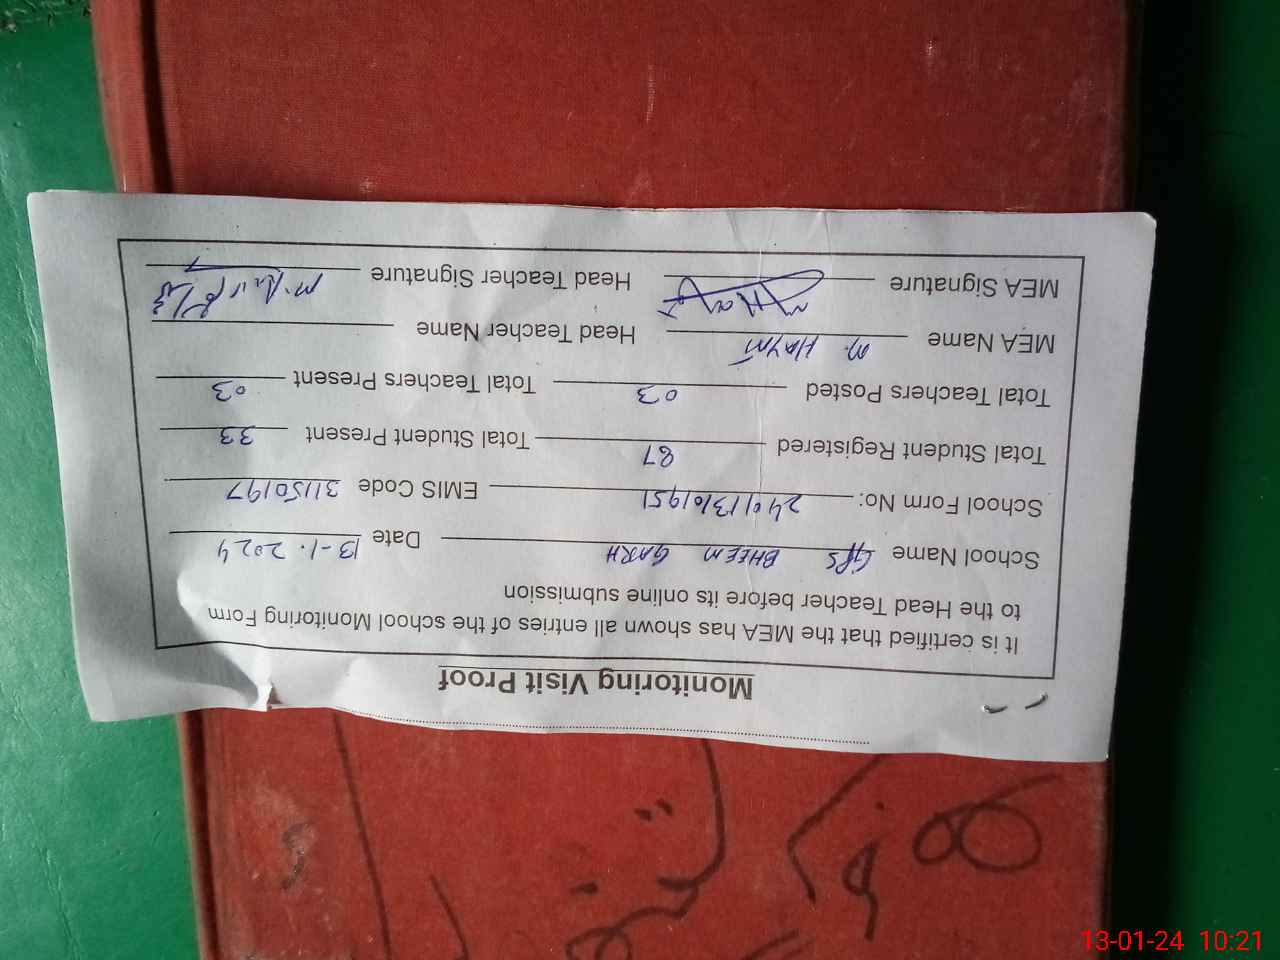 Monitoring Visit Proof
It is certified that the MEA has shown all entries of the school Monitoring Form
to the Head Teacher before its online submission
School Name GPS BHEEM GARH Date 13-1-2024
School Form No: 240113101951 EMIS Code 31150197
Total Student Registered 87 Total Student Present 33
Total Teachers Posted 03 Total Teachers Present 03
MEA Name M. HAYAT Head Teacher Name
MEA Signature Head Teacher Signature
13-01-24 10:21